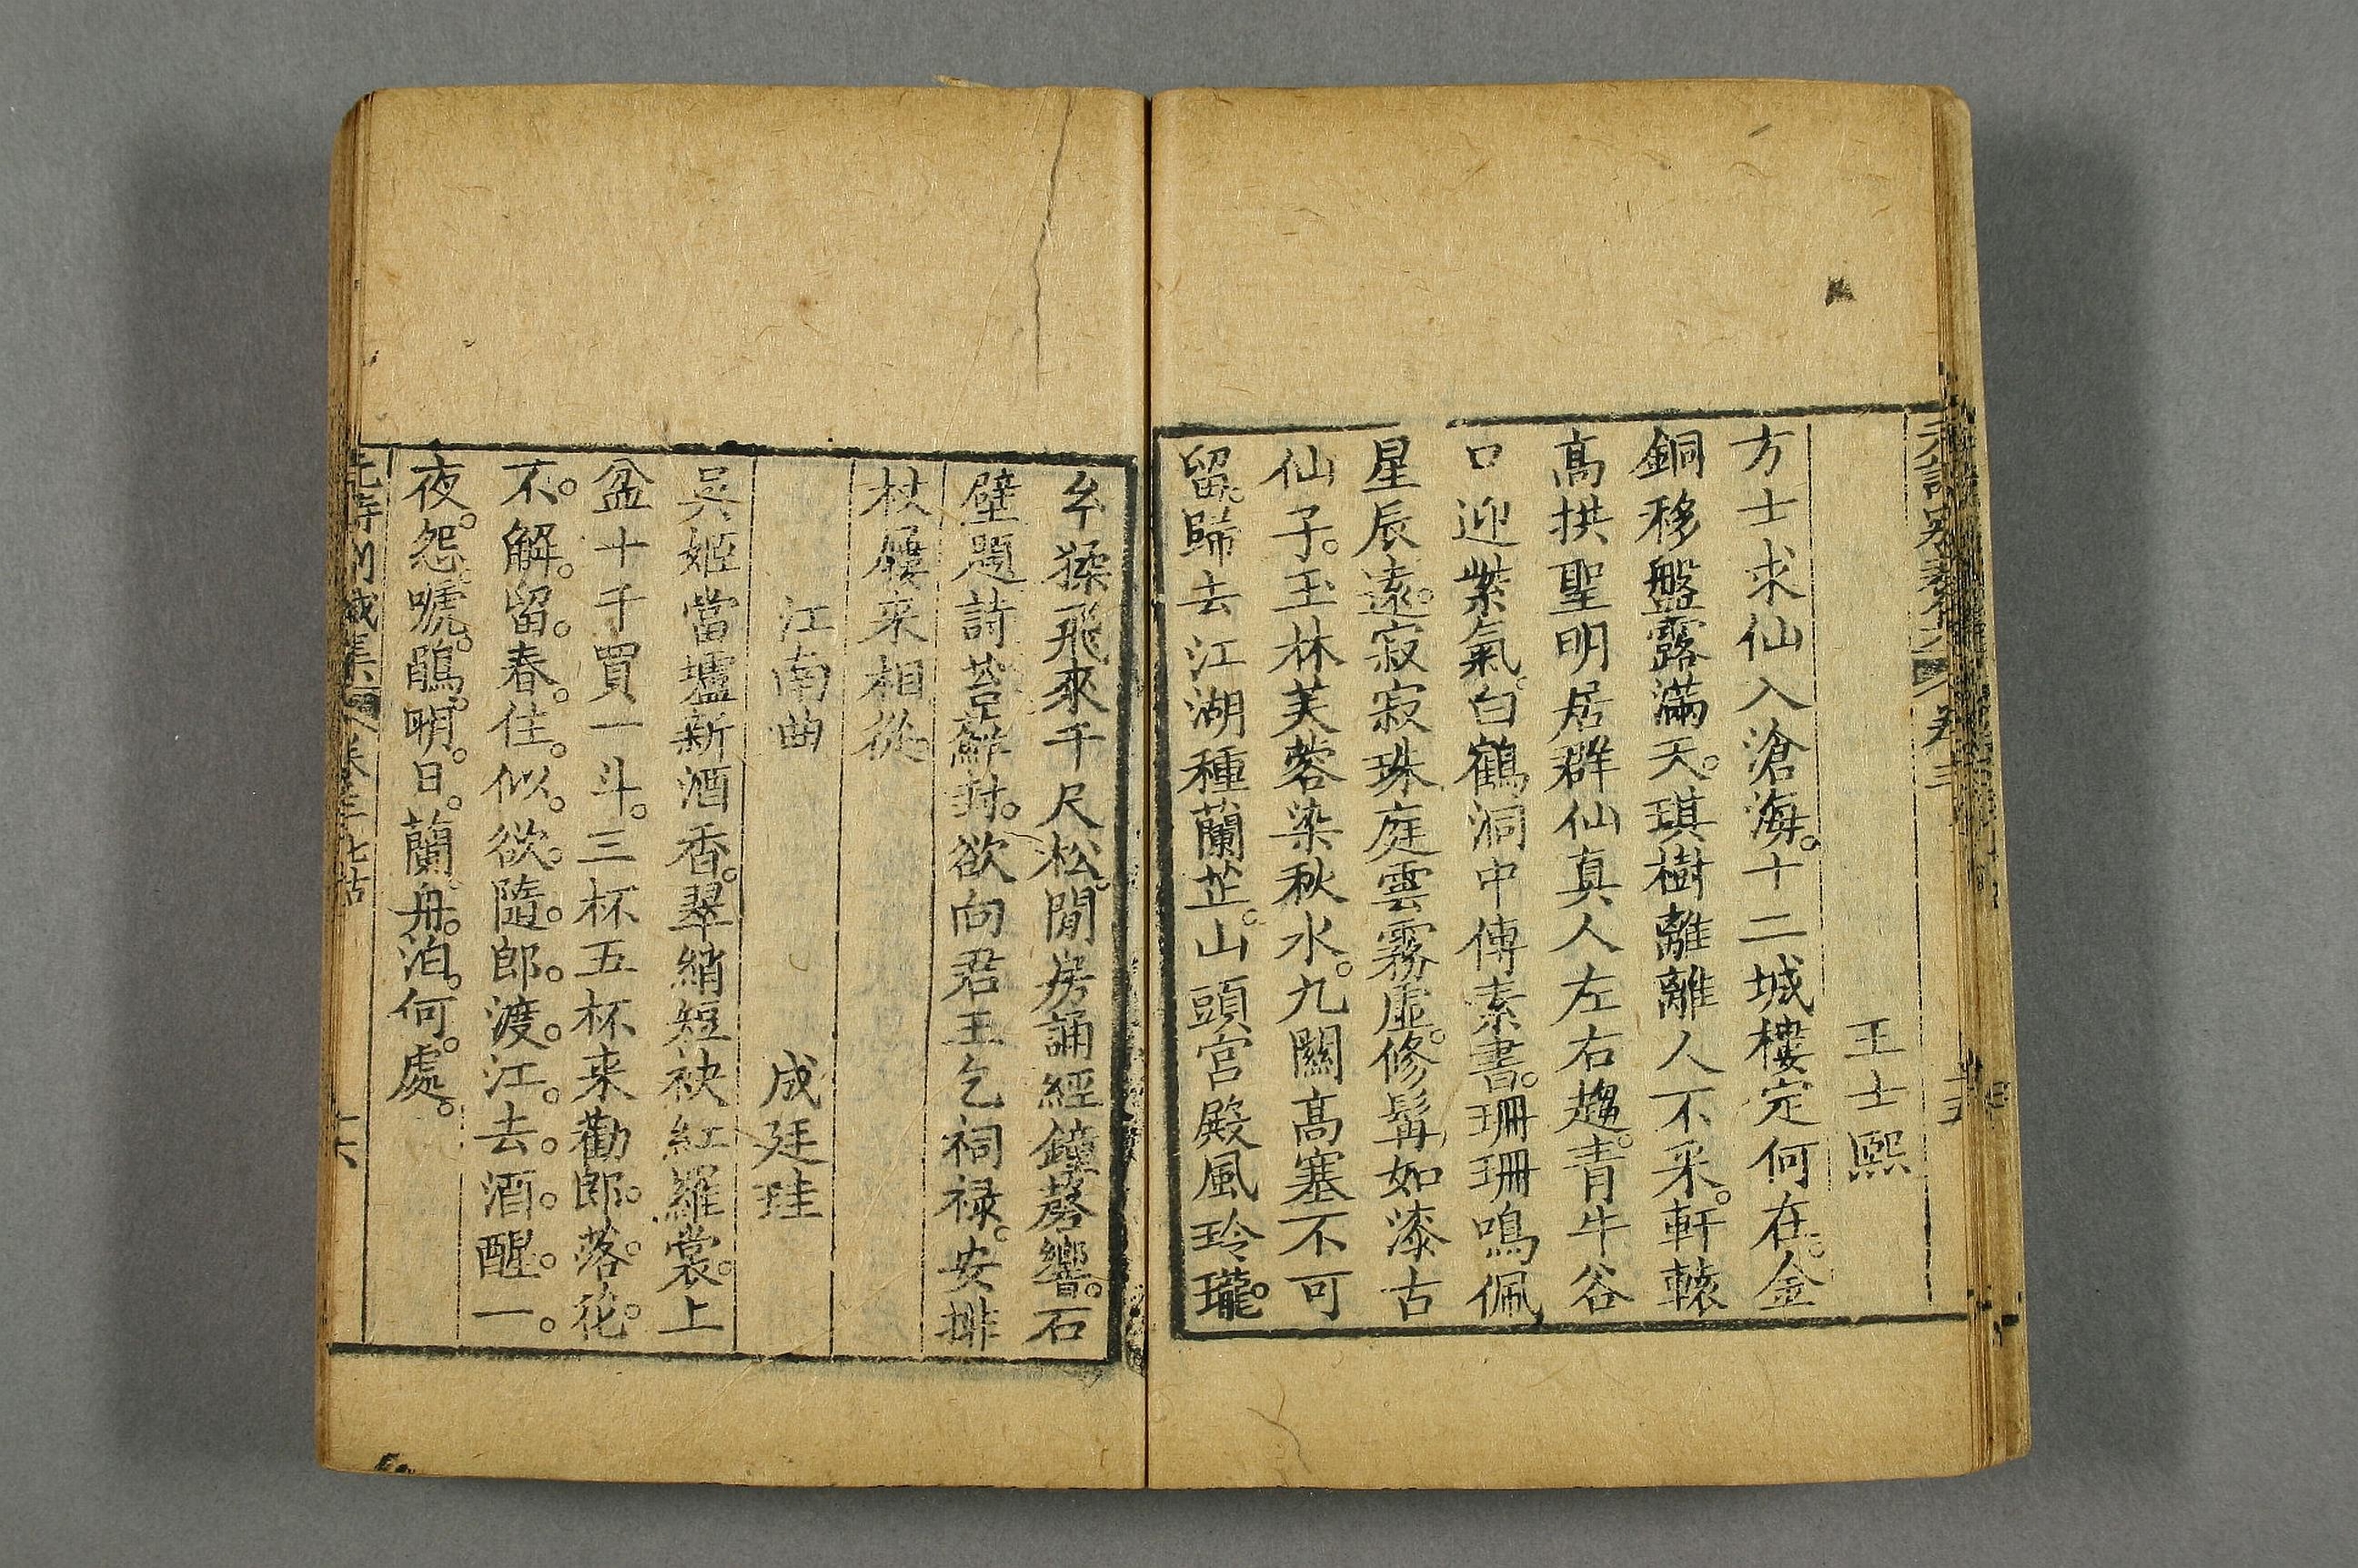 王士熙
方士求仙入滄海。十二城樓定何在。金
銅移盤露滿天。琪樹離離人不采。軒轅
高拱聖明居群仙真人左右趨。青牛谷
口迎紫氣。白鶴洞中傳素書。珊珊鳴佩
星辰遠。寂寂珠庭雲霧虛。修髯如漆古
仙子。玉林芙蓉染秋水。九關高塞不可
留。歸去江湖種蘭芷。山頭宮殿風玲瓏。
猱飛來千尺松。閒房誦經鐘磬響。石
壁題詩苔蘚封。欲向君王乞祠禄。安排
杖屨来相從。
江南曲
成廷珪
吳姬當壚新酒香。翠綃短袂紅羅裳。上
盆十千買一斗。三杯五杯来勸郎。落。花。
不。解。留。春。住。似。欲。隨。郎。渡。江。去。酒。醒。一。
夜。怨。啼。鵑。明。日。蘭。舟。泊。何。處。